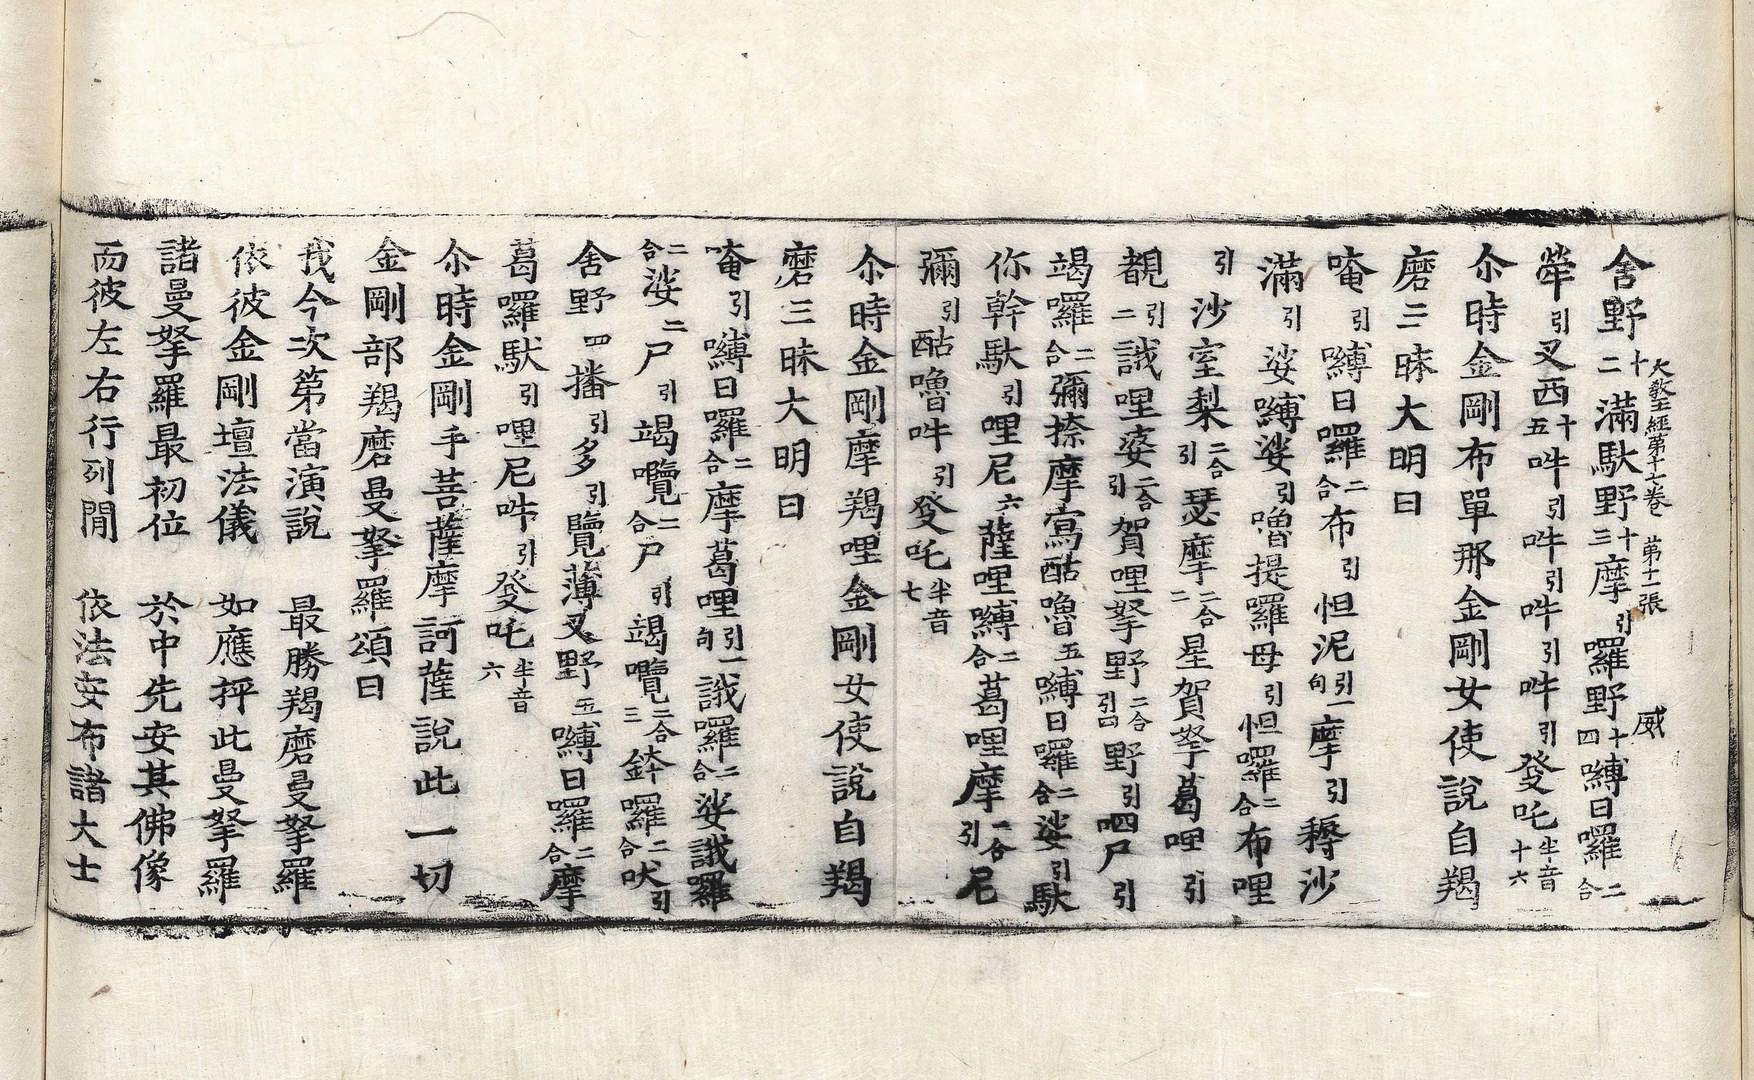 舍野十二滿馱野十三摩引囉野十四嚩日囉二合
大敎王經第十七卷　第十一張　威
犖引叉西十五吽引吽引吽引吽引發吒半音十六
尒時金剛布單那金剛女使說自羯
磨三昧大明曰
唵引嚩日囉二合布引怛泥引一句摩引耨沙
滿引娑嚩娑引嚕提囉母引怛囉二合布哩
引沙室梨二合引瑟摩二合二星賀拏葛哩引
覩引二誐哩婆二合引賀哩拏野二合引四野引呬尸引
竭囉二合彌捺摩寫酤嚕五嚩日囉二合娑引馱
你幹馱引哩尼六薩哩嚩二合葛哩摩二合引尼
彌引酤嚕吽引發吒半音七
尒時金剛摩羯哩金剛女使說自羯
磨三昧大明曰
唵引嚩日囉二合摩葛哩引一句誐囉二合娑誐囉
二合娑二尸引竭囕二合尸引竭囕二合三鉢囉二合吠引
舍野四播引多引覽薄叉野五嚩日囉二合摩
葛囉馱引哩尼吽引發吒半音六
尒時金剛手菩薩摩訶薩說此一切
金剛部羯磨曼拏羅頌曰
我今次第當演說　最勝羯磨曼拏羅
依彼金剛壇法儀　如應抨此曼拏羅
諸曼拏羅最初位　於中先安其佛像
而彼左右行列間　依法安布諸大士